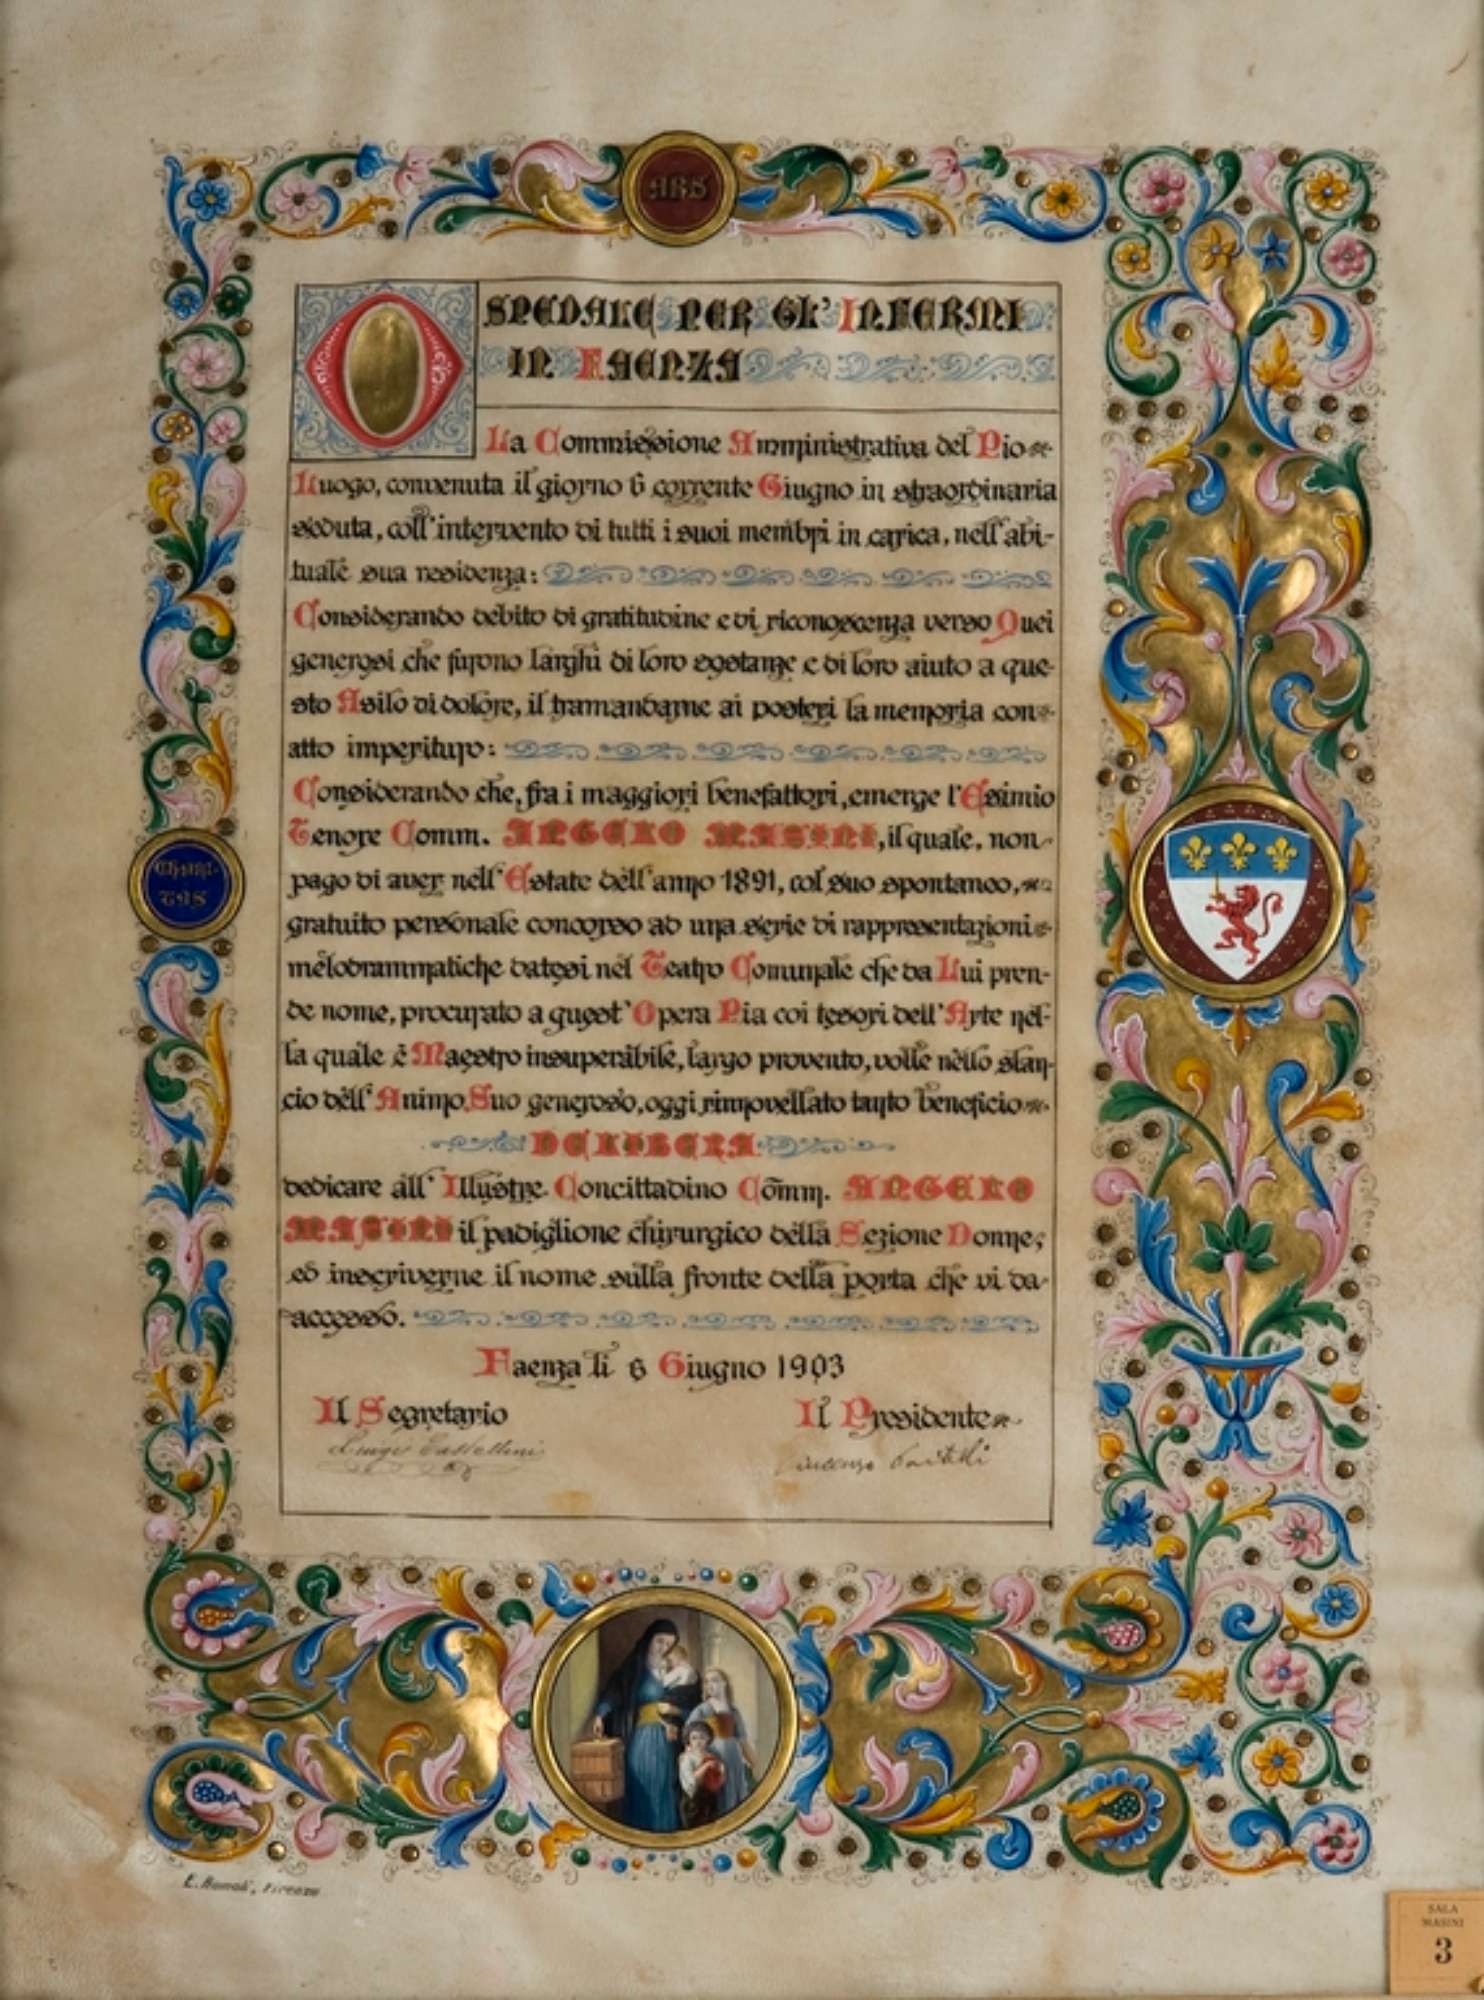 ARS
OSPEDALE PER GL' INFERMI
IN FAENZA
La Commissione Amministrativa del Pio
Luogo, convenuta il giorno 6 corrente Giugno in straordinaria
seduta, coll'intervento di tutti i suoi membri in carica, nell'abi-
tuale sua residenza:
Considerando debito di gratitudine e di riconoscenza verso Quei
generosi che furono larghi di loro sostanze e di loro aiuto a que-
sto Asilo di dolore, il tramandarne ai posteri la memoria con
atto imperituro:
Considerando che, fra i maggiori benefattori, emerge l'Esimio
Tenore Comm. ANGELO MASINI, il quale, non
pago di aver nell'Estate dell'anno 1891, col suo spontaneo,
gratuito personale concorso ad una serie di rappresentazioni
melodrammatiche datesi nel Teatro Comunale che da Lui pren-
de nome, procurato a quest'Opera Pia coi tesori dell'Arte nel-
la quale è Maestro insuperabile, largo provento, volle nello slan-
cio dell'Animo Suo generoso, oggi rinnovellato tanto beneficio
DELIBERA
dedicare all'Illustre Concittadino Comm. ANGELO
MASINI il padiglione chirurgico della Sezione Donne,
ed inscriverne il nome sulla fronte della porta che vi dà
accesso.
Faenza li 6 Giugno 1903
Il Segretario Il Presidente
Luigi Castellini Vincenzo
CHARI-
TAS
Firenze
SALA
MASINI
3